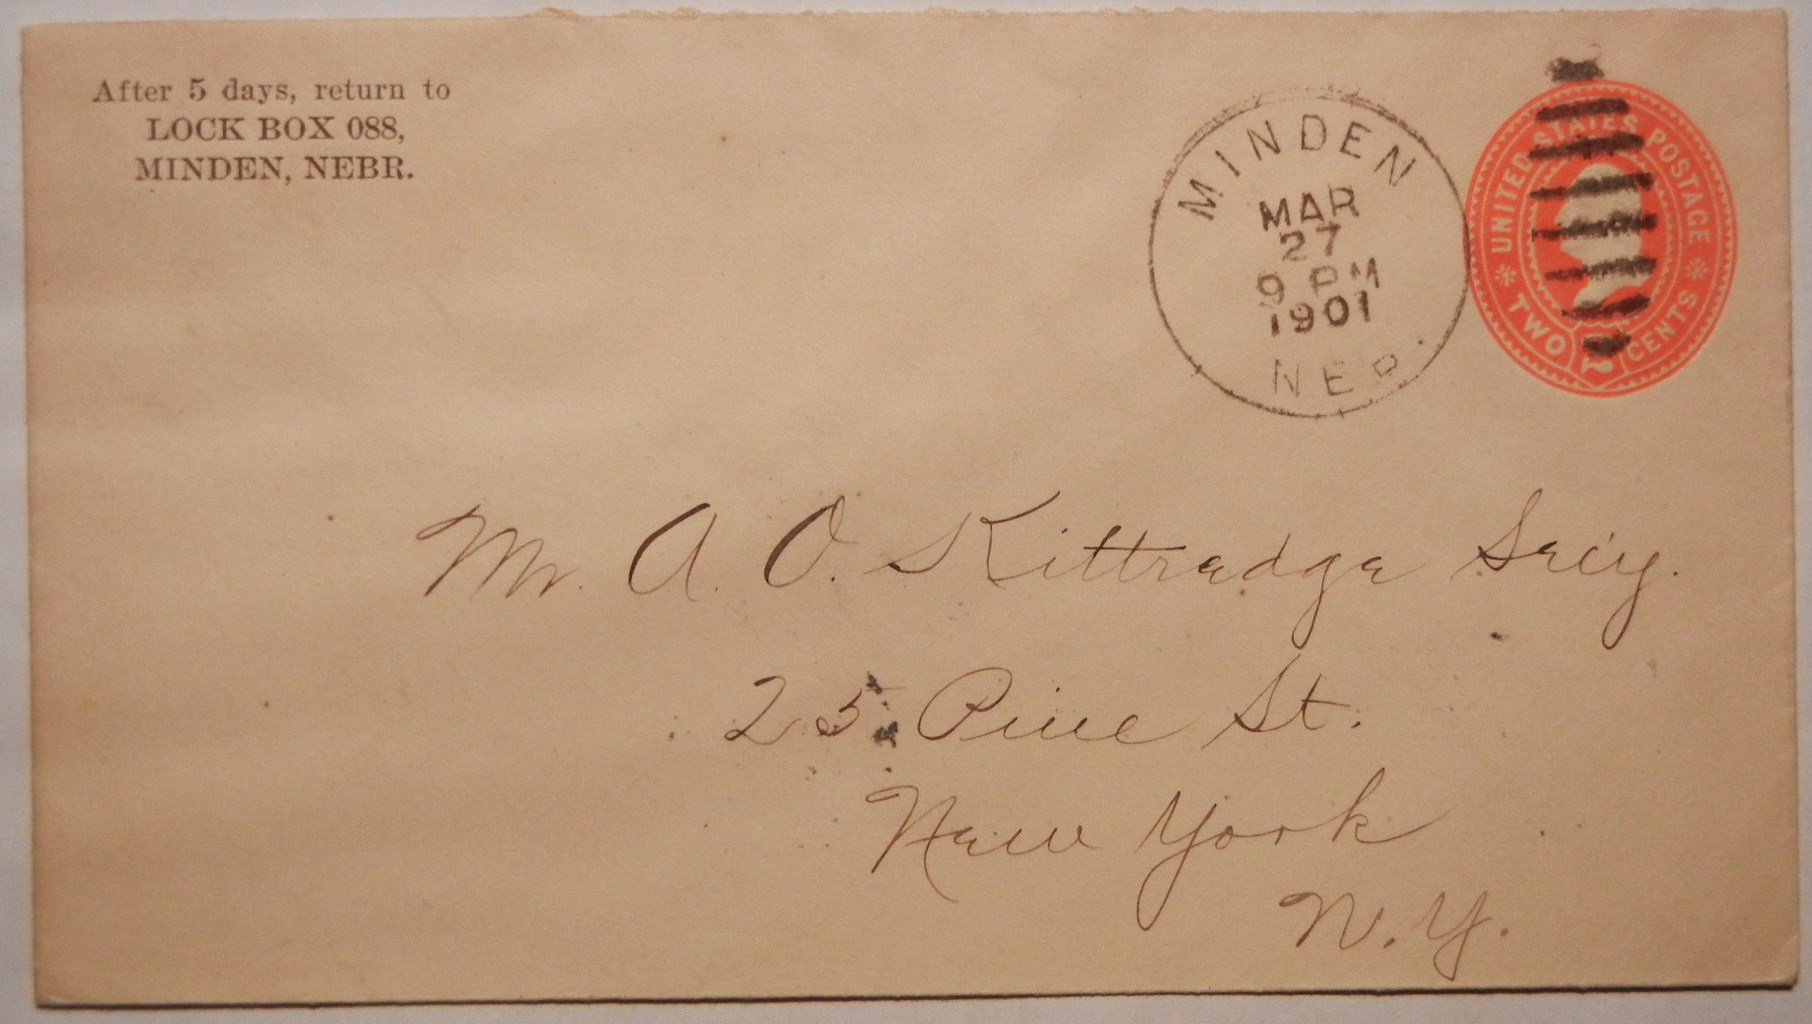 After 5 days, return to
LOCK BOX 088,
MINDEN, NEBR.
MINDEN
MAR
27
9 PM
1901
NEB.
UNITED STATES POSTAGE
TWO 2 CENTS
Mr. A. O. Kittredge Secy.
25 Pine St.
New York
N.Y.